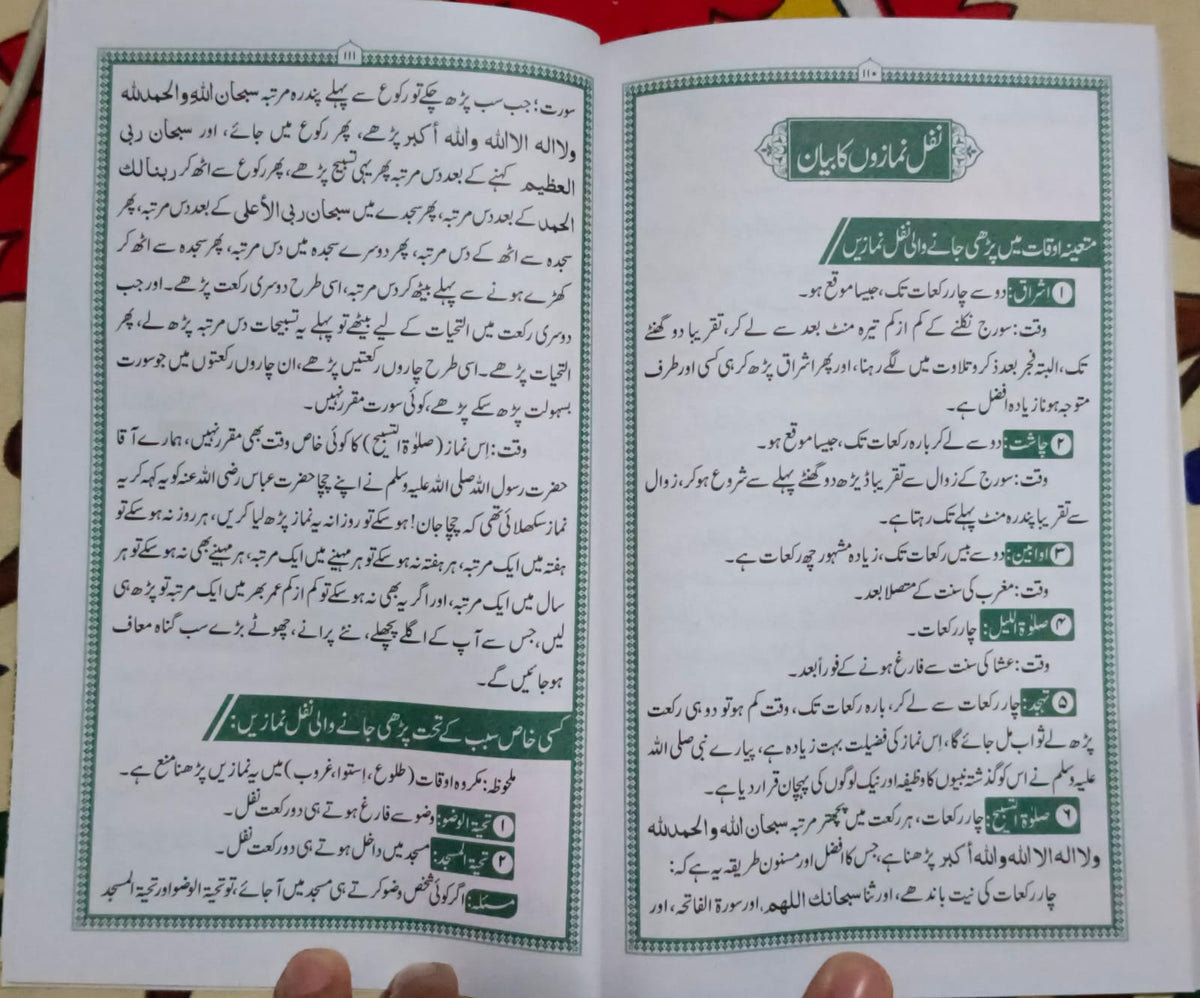 ۱۱۰
نفل نمازوں کا بیان
متعینہ اوقات میں پڑھی جانے والی نفل نمازیں
۱ اشراق: دو سے چار رکعات تک، جیسا موقع ہو۔
وقت: سورج نکلنے کے کم از کم تیرہ منٹ بعد سے لے کر، تقریبا دو گھنٹے
تک، البتہ فجر بعد ذکر و تلاوت میں لگے رہنا، اور پھر اشراق پڑھ کر ہی کسی اور طرف
متوجہ ہونا زیادہ افضل ہے۔
۲ چاشت: دو سے لے کر بارہ رکعات تک، جیسا موقع ہو۔
وقت: سورج کے زوال سے تقریبا ڈیڑھ دو گھنٹے پہلے سے شروع ہو کر، زوال
سے تقریبا پندرہ منٹ پہلے تک رہتا ہے۔
۳ اوابین: دو سے بیس رکعات تک، زیادہ مشہور چھ رکعات ہے۔
وقت: مغرب کی سنت کے متصلا بعد۔
۴ صلوٰۃ اللیل: چار رکعات۔
وقت: عشا کی سنت سے فارغ ہونے کے فوراً بعد۔
۵ تہجد: چار رکعات سے لے کر، بارہ رکعات تک، وقت کم ہو تو دو ہی رکعت
پڑھ لے ثواب مل جائے گا، اِس نماز کی فضیلت بہت زیادہ ہے، پیارے نبی صلی اللہ
علیہ وسلم نے اس کو گذشتہ نبیوں کا وظیفہ اور نیک لوگوں کی پہچان قرار دیا ہے۔
۶ صلوٰۃ التسبیح: چار رکعات، ہر رکعت میں پچھتر مرتبہ سبحان اللہ والحمدللہ
ولا الہ الا اللہ واللہ أکبر پڑھنا ہے، جس کا افضل اور مسنون طریقہ یہ ہے کہ:
چار رکعات کی نیت باندھے، اور ثنا سبحانك اللھم، اور سورۃ الفاتحہ، اور
۱۱۱
سورت؛ جب سب پڑھ چکے تو رکوع سے پہلے پندرہ مرتبہ سبحان اللہ والحمدللہ
ولا الہ الا اللہ واللہ أکبر پڑھے، پھر رکوع میں جائے، اور سبحان ربی
العظیم کہنے کے بعد دس مرتبہ پھر یہی تسبیح پڑھے، پھر رکوع سے اٹھ کر ربنا لك
الحمد کے بعد دس مرتبہ، پھر سجدے میں سبحان ربی الأعلی کے بعد دس مرتبہ، پھر
سجدہ سے اٹھ کے دس مرتبہ، پھر دوسرے سجدہ میں دس مرتبہ، پھر سجدہ سے اٹھ کر
کھڑے ہونے سے پہلے بیٹھ کر دس مرتبہ، اسی طرح دوسری رکعت پڑھے۔ اور جب
دوسری رکعت میں التحیات کے لیے بیٹھے تو پہلے یہ تسبیحات دس مرتبہ پڑھ لے، پھر
التحیات پڑھے۔ اسی طرح چاروں رکعتیں پڑھے، ان چاروں رکعتوں میں جو سورت
بسہولت پڑھ سکے پڑھے، کوئی سورت مقرر نہیں۔
وقت: اِس نماز (صلوٰۃ التسبیح) کا کوئی خاص وقت بھی مقرر نہیں، ہمارے آقا
حضرت رسول اللہ صلی اللہ علیہ وسلم نے اپنے چچا حضرت عباس رضی اللہ عنہ کو یہ کہہ کر یہ
نماز سکھلائی تھی کہ چچا جان! ہو سکے تو روزانہ یہ نماز پڑھ لیا کریں، ہر روز نہ ہو سکے تو
ہفتہ میں ایک مرتبہ، ہر ہفتہ نہ ہو سکے تو ہر مہینے میں ایک مرتبہ، ہر مہینے بھی نہ ہو سکے تو ہر
سال میں ایک مرتبہ، اور اگر یہ بھی نہ ہو سکے تو کم از کم عمر بھر میں ایک مرتبہ تو پڑھ ہی
لیں، جس سے آپ کے اگلے پچھلے، نئے پرانے، چھوٹے بڑے سب گناہ معاف
ہو جائیں گے۔
کسی خاص سبب کے تحت پڑھی جانے والی نفل نمازیں:
ملحوظہ: مکروہ اوقات (طلوع، استوا، غروب) میں یہ نمازیں پڑھنا منع ہے۔
۱ تحیۃ الوضو: وضو سے فارغ ہوتے ہی دو رکعت نفل۔
۲ تحیۃ المسجد: مسجد میں داخل ہوتے ہی دو رکعت نفل۔
مسئلہ: اگر کوئی شخص وضو کرتے ہی مسجد میں آ جائے، تو تحیۃ الوضو اور تحیۃ المسجد